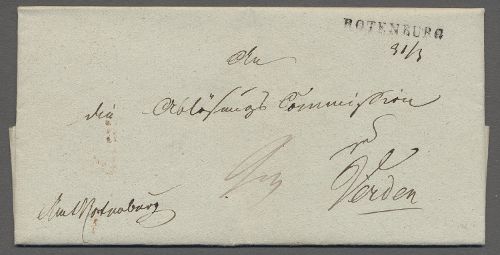 ROTENBURG
31/3
An
die Ablösungs Commission
zu
Verden
Amt Rotenburg